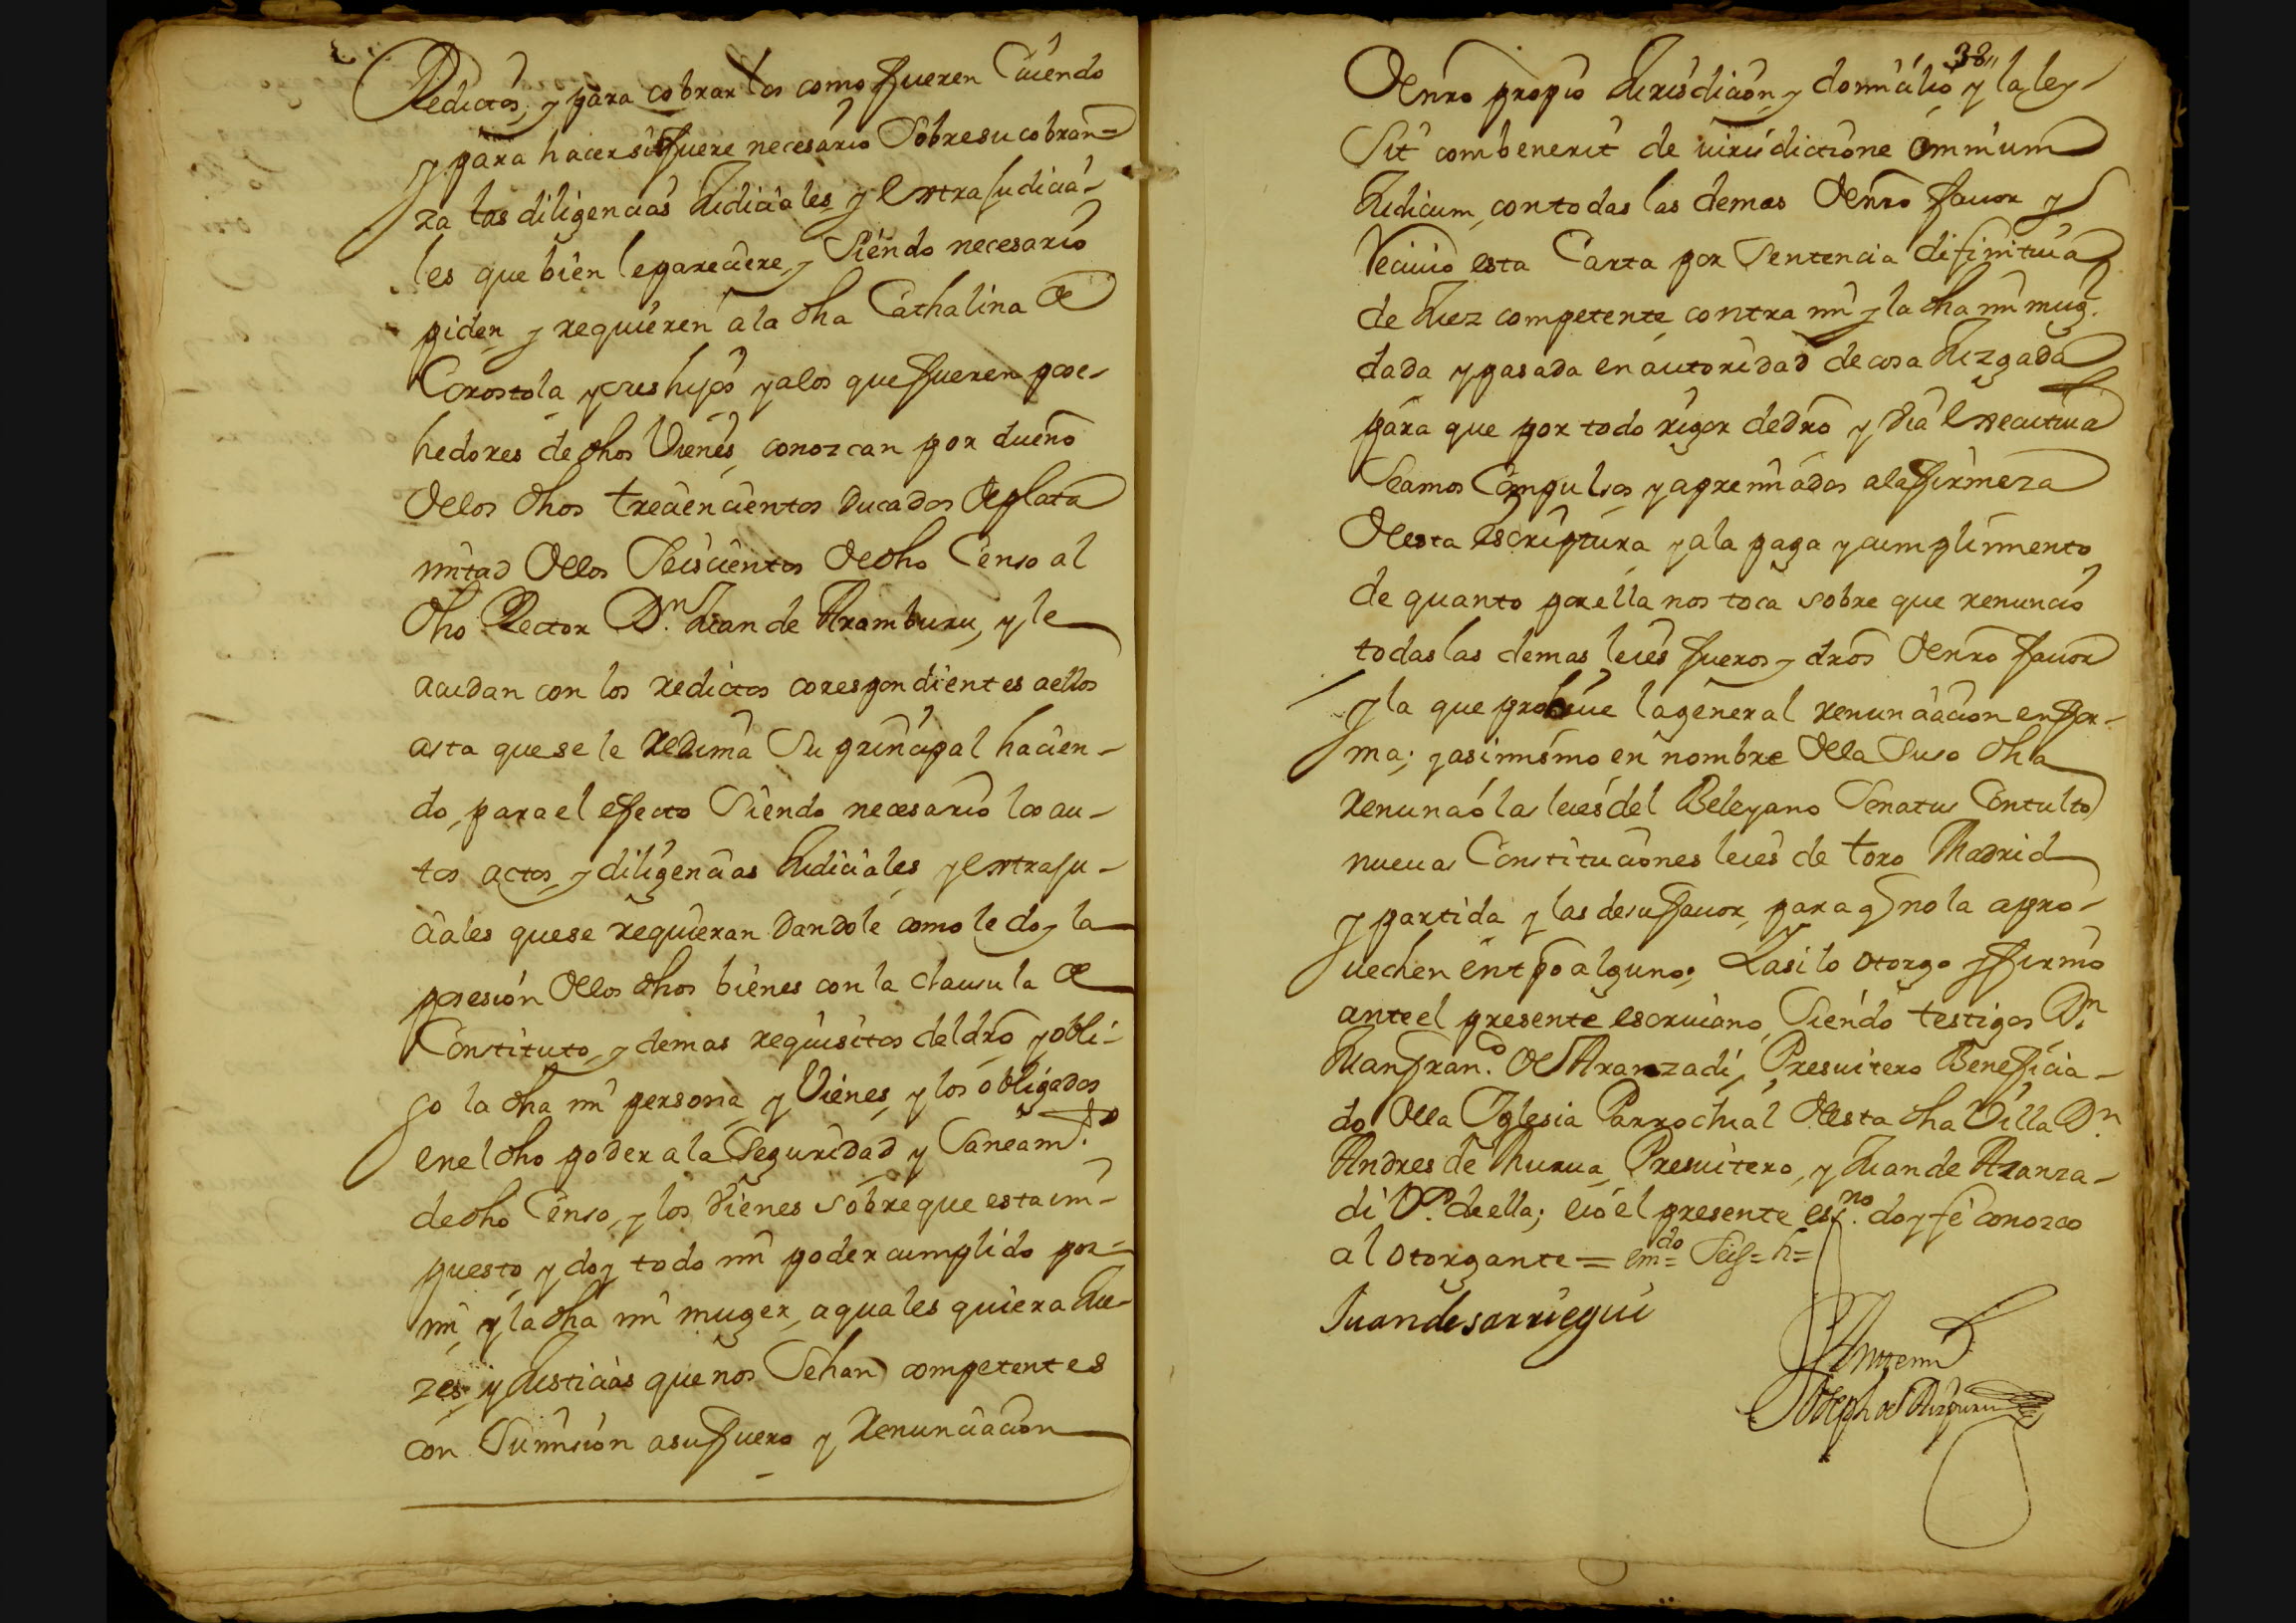 Redictos, y para cobrarlos como fueren Caiendo
y para hacer si fuere necesario Sobre su cobran=
za las diligencias Judiciales y Extrajudicia-
les que bien le pareciere, y Siendo necesario
piden y requieren a la dha Cathalina de
Corostola y sus hijos y a los que fueren poe-
hedores de dhos Vienes, conozcan por dueño
de los dhos trecientos Ducados de plata
mitad de los Seiscientos de dho Censo al
dho Rector Dn. Juan de Aramburu, y le
acudan con los redictos corespondientes a ellos
asta que se le Redima Su principal hacien-
do, para el efecto Siendo necesario los au-
tos actos, y diligencias Judiciales y Extraju-
ciales que se requieran Dandole como le doy la
posesión de los dhos bienes con la clausula de
Constituto, y demas requisitos del dro y obli-
go la dha mi persona y Vienes, y los obligados
en el dho poder a la Seguridad y Saneamto.
de dho Censo, y los Vienes sobre que esta im-
puesto, y doy todo mi poder cumplido por=
mi, y la dha mi muger, a quales quiera Jue-
zes y Justicias que nos Sehan competentes
con Sumision a su fuero y Renunciacion
38"
de nro propio Jurisdicion y domicilio y la ley-
Sit combenerit de iurisdictione omnium
Judicum, con todas las demas de nro fauor y
Reciuio esta Carta por Sentencia difinitiua
de Juez competente contra mi y la dha mi mug.
dada y pasada en autoridad de cosa Juzgada
para que por todo rigor de Dro y Via Executiua
Seamos Compulsos y apremiados a la firmeza
desta escriptura y a la paga y cumplimento
de quanto por ella nos toca sobre que renuncio
todas las demas leies fueros y dros de nro fauor
y la que prohiue la general renunciacion en for-
ma; y asi mismo en nombre de la Suso dha
Renuncio las leies del Beleyano Senatus Contulto
nueuas Constituciones leies de toro Madrid
y partida y las de su fauor, para q no la apro-
uechen en tpo alguno; Y asi lo otorgo y firmo
ante el presente escriuano, Siendo testigos Dn.
Juan franco. de Aranzadi, Presuitero Beneficia-
do de la Iglesia Parrochial desta dha Villa Dn.
Andres de Murua, Presuitero, y Juan de Aranza-
di Vo. de ella; e io el presente esno. doy fe conozco
al otorgante = emdo = Seis = h =
Juan de sarriegui
Ante mi
Joseph de Aizpuru